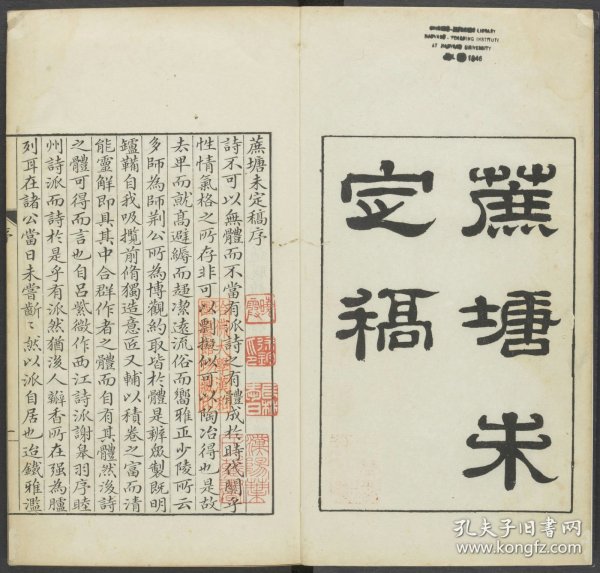 CHINESE-JAPANESE LIBRARY
HARVARD-YENCHING INSTITUTE
AT HARVARD UNIVERSITY
1946
蕉塘未
定稿
蕉塘未定稿序
詩不可以無體而不當有派詩之有體成於時代關乎
性情氣格之所存非可以剽擬似可以陶冶得也是故
去卑而就高避縟而趨潔遠流俗而嚮雅正少陵所云
多師為師荆公所為博觀約取皆於體是辨鎔製既明
鑪鞴自我吸攬前脩獨造意匠又輔以積卷之富而清
能靈解即具其中合群作者之體而自有其體然後詩
之體可得而言也自呂紫微作西江詩派謝皋羽序睦
州詩派而詩於是乎有派然猶後人瓣香所在强為臚
列耳在諸公當日未嘗齗〻然以派自居也迨鐵雅濫
序
一
漢陽葉
孔夫子旧书网
www.kongfz.com